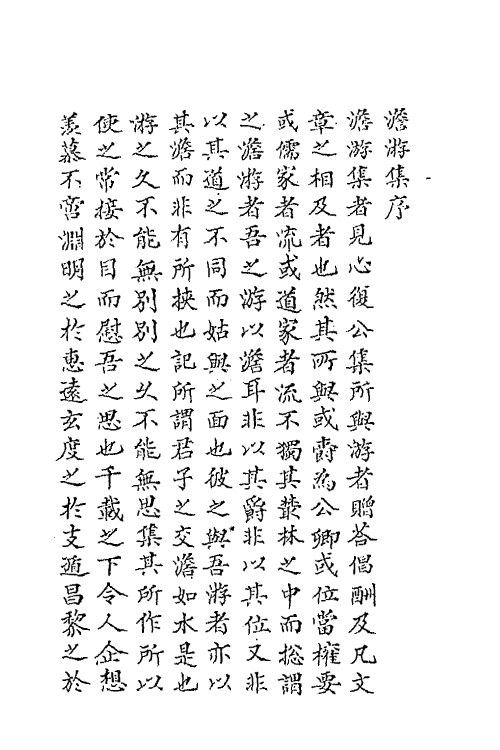 澹游集序
澹游集者見心復公集所與游者贈荅倡酬及凡文
章之相及者也然其所與或爵為公卿或位當權要
或儒家者流或道家者流不獨其叢林之中而捴謂
之澹游者吾之游以澹耳非以其爵非以其位又非
以其道之不同而姑與之面也彼之與吾游者亦以
其澹而非有所挾也記所謂君子之交澹如水是也
游之久不能無別別之久不能無思集其所作所以
使之常接於目而慰吾之思也千載之下令人企想
羨慕不啻淵明之於惠遠玄度之於支遁昌黎之於